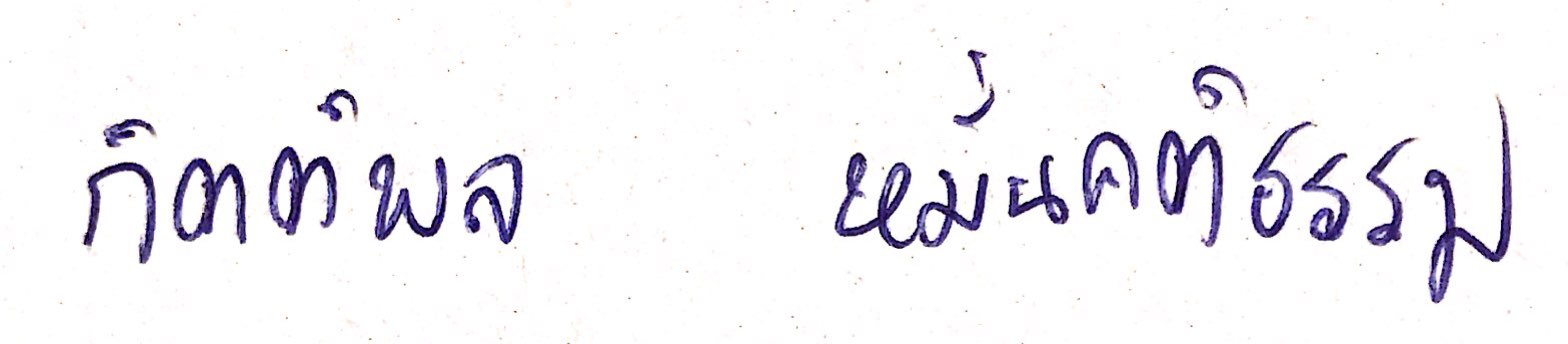 กิตติพล หมั่นคติธรรม